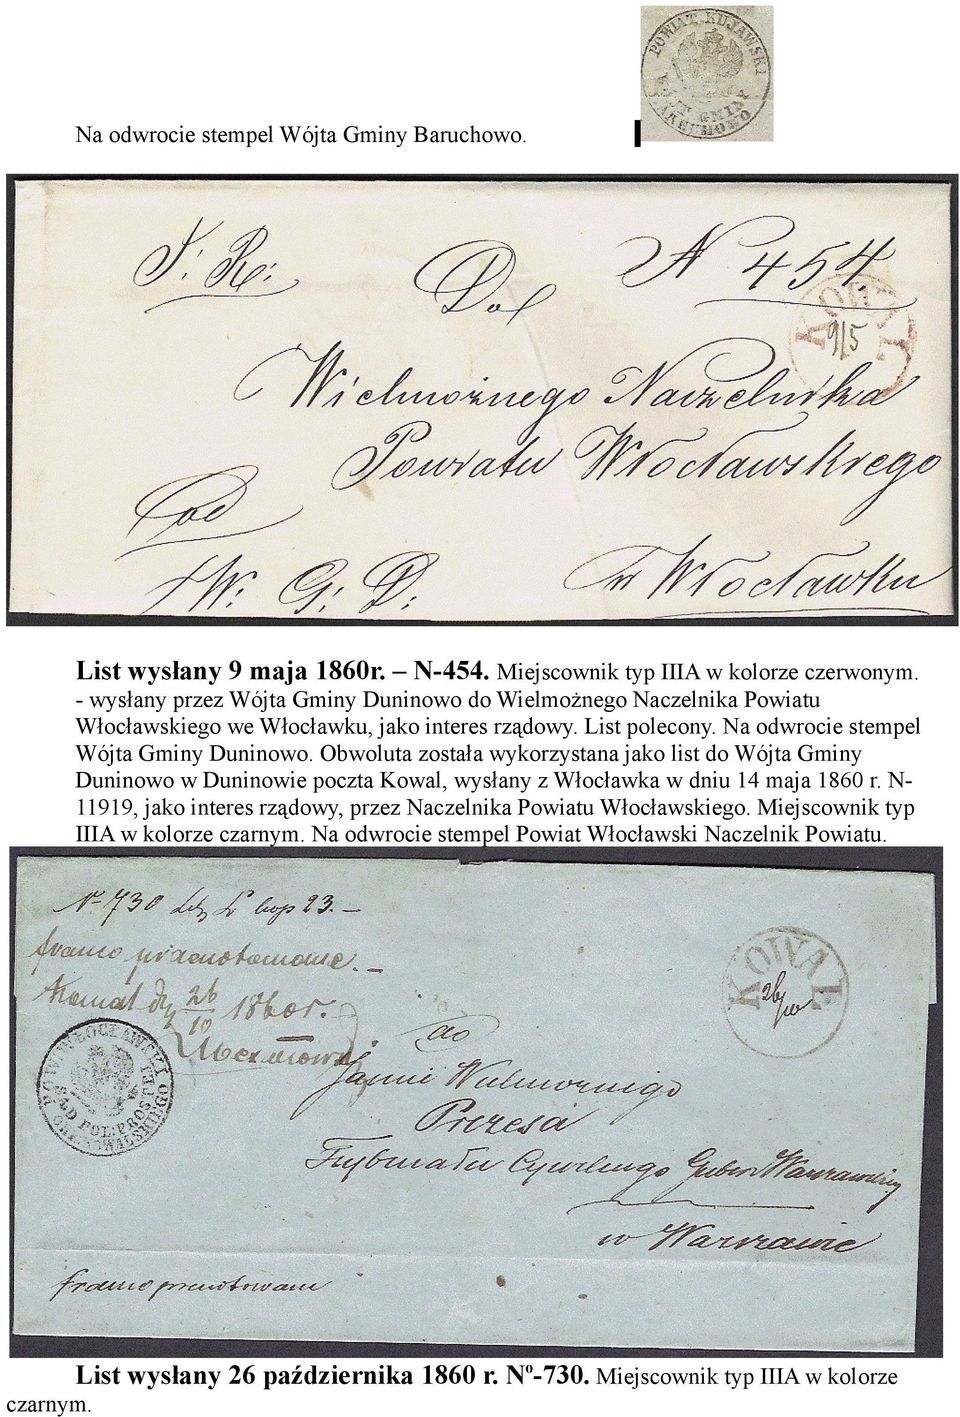 POWIAT KUJAWSKI
WÓJT GMINY
BARUCHOWO
Na odwrocie stempel Wójta Gminy Baruchowo.
J: R:
Do
N 454.
KOWAL
9/5
Wielmożnego Naczelnika
Powiatu Włocławskiego
Od
W: G: D:
w Włocławku
List wysłany 9 maja 1860r. – N-454. Miejscownik typ IIIA w kolorze czerwonym.
- wysłany przez Wójta Gminy Duninowo do Wielmożnego Naczelnika Powiatu
Włocławskiego we Włocławku, jako interes rządowy. List polecony. Na odwrocie stempel
Wójta Gminy Duninowo. Obwoluta została wykorzystana jako list do Wójta Gminy
Duninowo w Duninowie poczta Kowal, wysłany z Włocławka w dniu 14 maja 1860 r. N-
11919, jako interes rządowy, przez Naczelnika Powiatu Włocławskiego. Miejscownik typ
IIIA w kolorze czarnym. Na odwrocie stempel Powiat Włocławski Naczelnik Powiatu.
Nº 730 kop 23.–
franco przenotowane.–
Kowal 26/10 1860r.
KOWAL
26/10
POWIAT WŁOCŁAWSKI
SĄD POL: PROSTEJ
OKR: KOWALSKIEGO
do
Jaśnie Wielmożnego
Prezesa
Trybunału Cywilnego Guber Warszawskiej
w Warszawie
franco przenotowane
List wysłany 26 października 1860 r. Nº-730. Miejscownik typ IIIA w kolorze
czarnym.